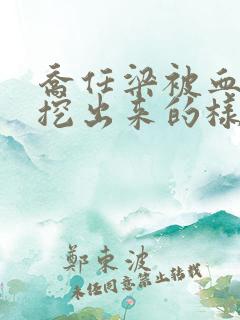 喬任梁被血
挖出来的樣
鄭東波
未经同意禁止转载